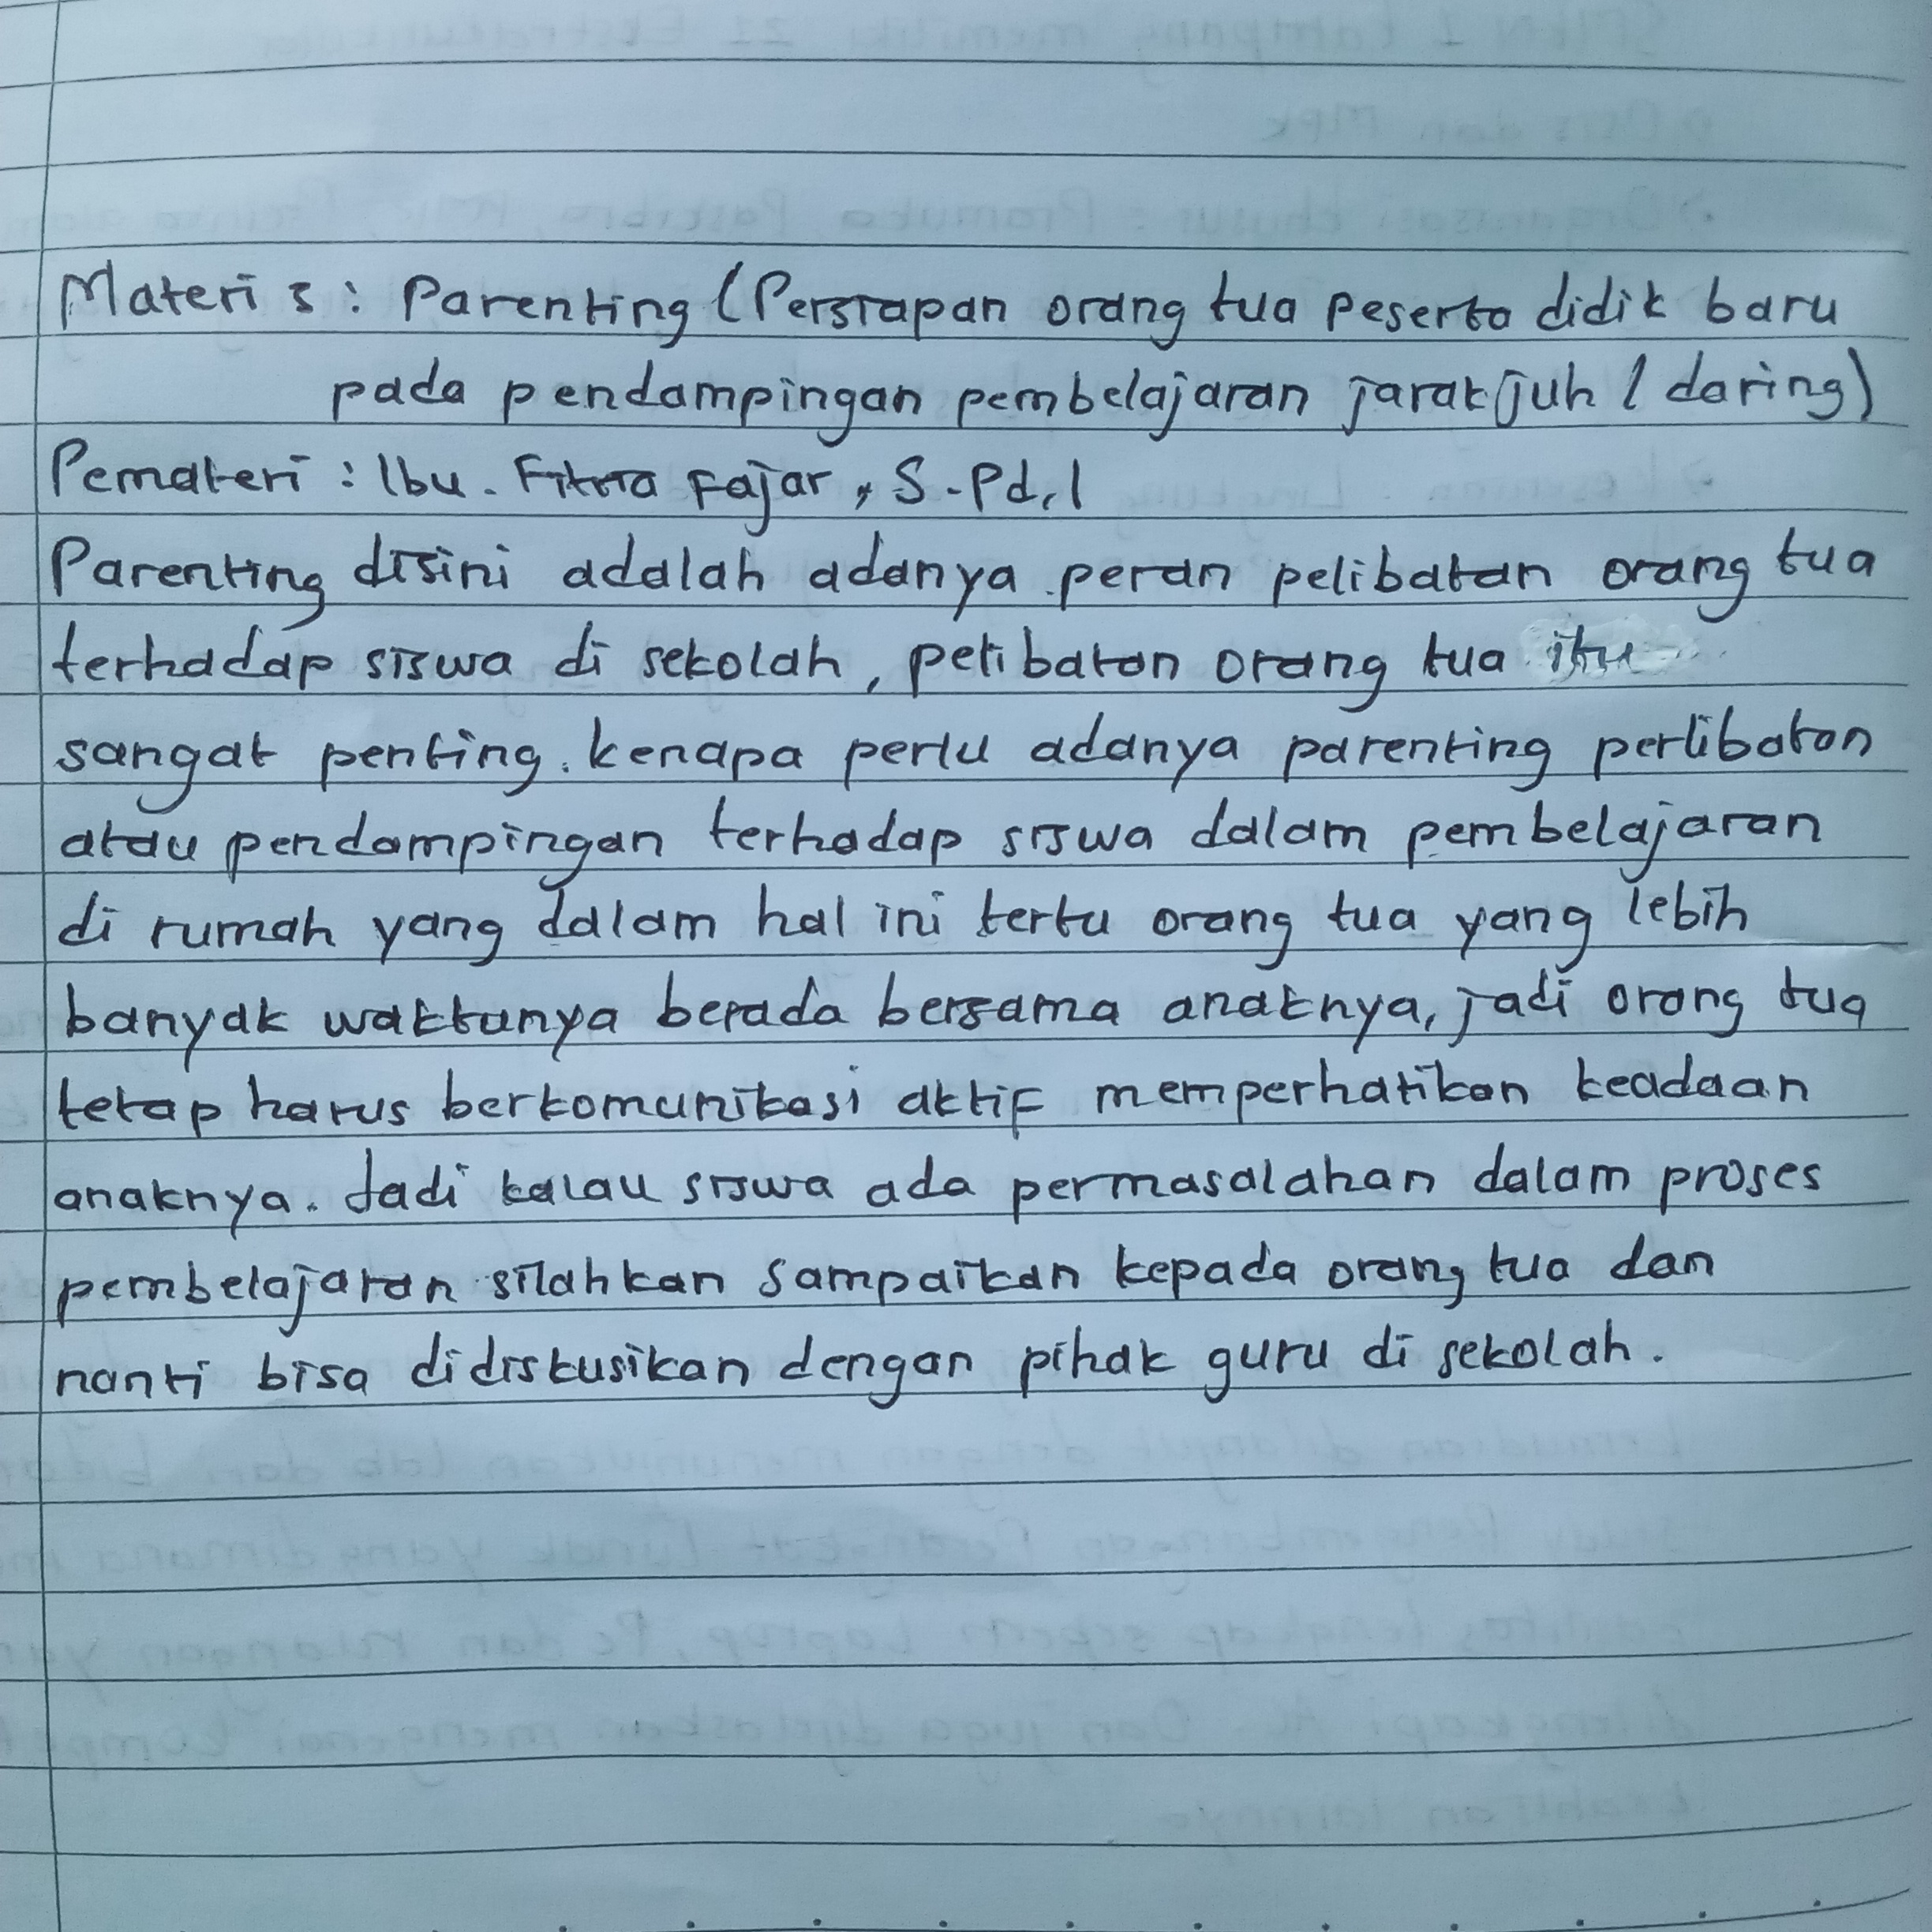 Materi 3 : Parenting (Persiapan orang tua peserta didik baru
pada pendampingan pembelajaran jarak juh / daring)
Pemateri : Ibu. Fitria Fajar, S.Pd,I
Parenting disini adalah adanya peran pelibatan orang tua
terhadap siswa di sekolah, pelibatan orang tua itu
sangat penting. kenapa perlu adanya parenting perlibatan
atau pendampingan terhadap siswa dalam pembelajaran
di rumah yang dalam hal ini tertu orang tua yang lebih
banyak waktunya berada bersama anaknya, jadi orang tua
tetap harus berkomunikasi aktif memperhatikan keadaan
anaknya. Jadi kalau siswa ada permasalahan dalam proses
pembelajaran silahkan sampaikan kepada orang tua dan
nanti bisa didiskusikan dengan pihak guru di sekolah.